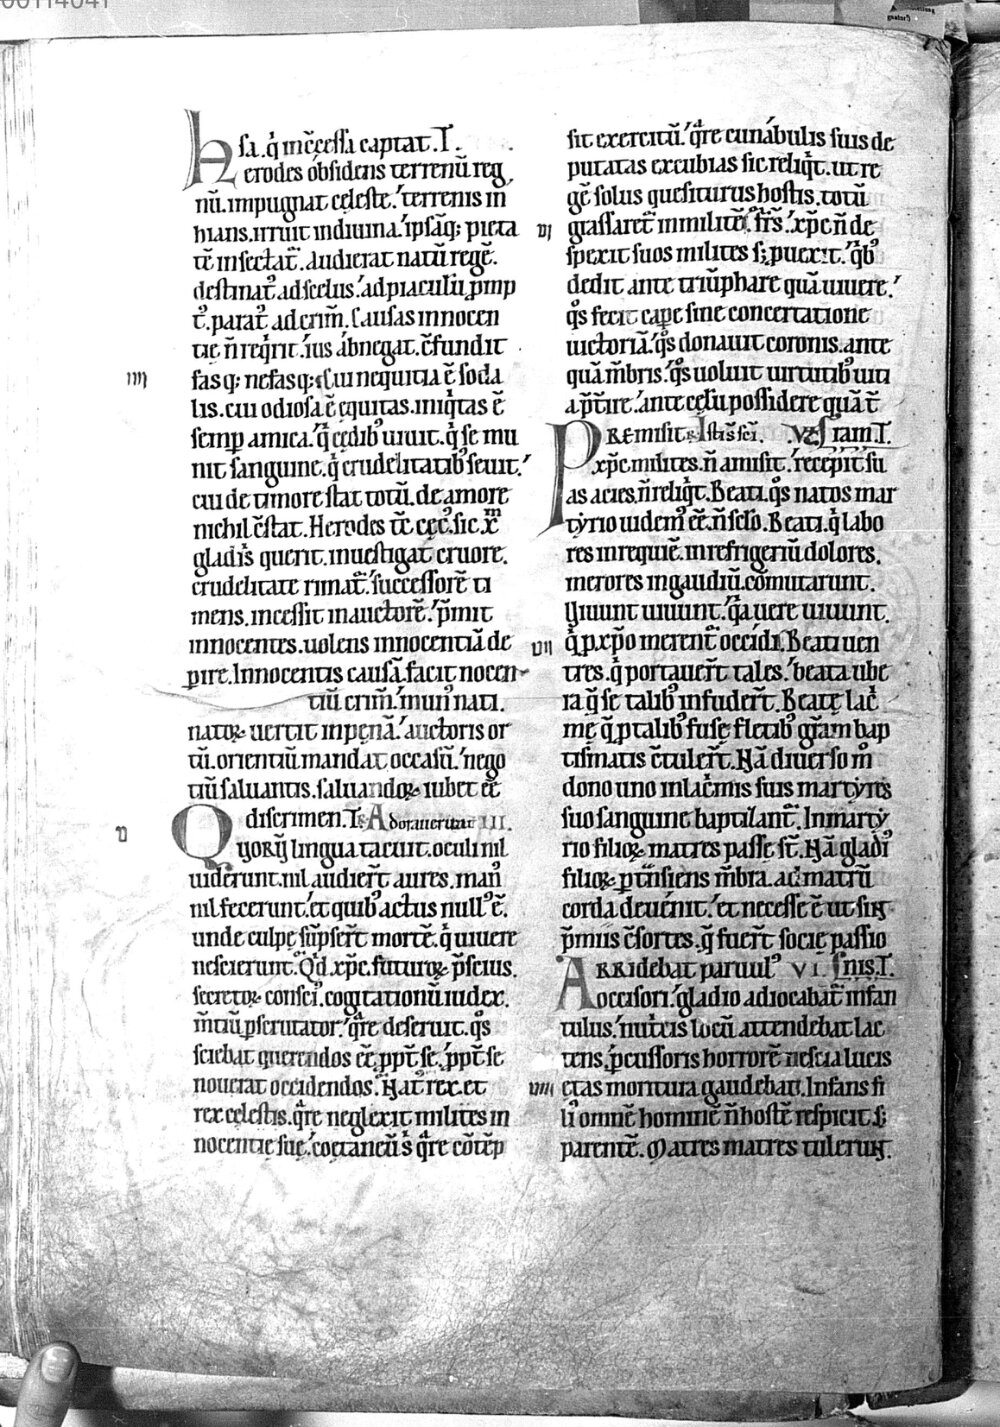 sa.q͛ inc̄ęssa captat. T.
herodes obsidens terrenū reg
nū. impugnat cęleste. terrenis in
hians. irruit in diuina. ipsāq; pieta
tē insectat᷑. audierat natū regē.
destinat᷒ ad scelus. ad piaculū ꝓmp
t᷒. parat᷒ ad crim̄. Causas innocen
tię n̄ reqͥrit. ius abnegat. c̄fundit
fasq; nefasq; Cui nequitia ē soda
lis. cui odiosa ē ęquitas. iniqͥtas ē
semp̱ amica. qͥ cędib᷒ uiuit. qͥ se mu
nit sanguine. qͥ crudelitatib᷒ seuit.
cui de timore stat totū. de amore
nichil c̄stat. Herodes
gladiis querit. inuestigat cruore.
crudelitate rimat᷑. successorē ti
mens. incessit in auctorē. ꝑimit
innocentes. uolens innocentiā de
ꝑire. Innocentis causā facit nocen
tiū crim̄. mun᷒ nati.
natoꝝ uertit in pęnā. auctoris or
tū. orientiū mandat occasū. nego
tiū saluantis. saluandoꝝ iubet eē
discrimen. T. Adorauerunt III.
Quorū lingua tacuit. oculi nil
uiderunt. nil audier̄t aures. man᷒
nil fecerunt. et quib᷒ actus null᷒ ē.
unde culpę sūpser̄t mortē. qͥ uiuere
nescierunt. Qd̄ xp̄c futuroꝝ p̄scius.
secretoꝝ consci᷒. cogitationū iudex.
m̄tiū ꝑscrutator. qͣre deseruit. qͦs
sciebat querendos eē ꝓpt̄ se. ꝓpt̄ se
nouerat occidendos. Nat᷒ rex. et
rex cęlestis. qͣre neglexit milites in
nocentię suę. coętaneū s᷒ qͣre cōtēp
sit exercitū. qͣre cunabulis suis de
putatas excubias sic reliqͥt. ut re
gē solus quesiturus hostis. totū
grassaret᷑ in militē. Fr̄s. xp̄c n̄ de
spexit suos milites s; ꝓuexit. qͥb᷒
dedit ante triūphare quā uiuere.
qͦs fecit capere sine concertatione
uictoriā. qͦs donauit coronis. ante
quā m̄bris. qͦs uoluit uirtutib᷒ uiti
a p̄t̄ire. ante cęlū possidere quā t̄
Premisit Isti s̄ s̄ci. V. ram T.
xp̄c milites. n̄ amisit. recepit su
as acies. n̄ reliqͥt. Beati. qͦs natos mar
tyrio uidem᷒ eē. n̄ sc̄lo. Beati. qͥ labo
res in requiē. in refrigeriū dolores.
merores in gaudiū. cōmutarunt.
Uiuunt uiuunt. qͣ uere uiuunt.
qͥ ꝓ xp̄o merent᷑ occidi. Beati uen
tres. qͥ portauer̄t tales. beata ube
ra quę se talib᷒ infuder̄t. Beatę lacͥ
mę quę ꝓ talib᷒ fusę fletib᷒ grām bap
tismatis c̄tuler̄t. Nā diuerso m̄
dono uno in lacͥmis suis martyres
suo sanguine baptizant᷑. In marty
rio filioꝝ matres passę st̄. Nā gladi᷒
filioꝝ ꝑt̄nsiens m̄bra. ad matrū
corda deuenit. et necesse ē ut sint
p̄miis c̄sortes. quę fuer̄t socię passio
Arridebat paruul᷒ VI. nis. T.
occisori. gladio adiocabat᷑ infan
tulus. nutͥcis locū attendebat lac
tens. ꝑcussoris horrorē. nescia lucis
ętas moritura gaudebat. Infans si
li᷒ omnē hominē n̄ hostē respicit s;
parentē. Matres matres tulerunt.
IIII
V
VI
VII
VIII